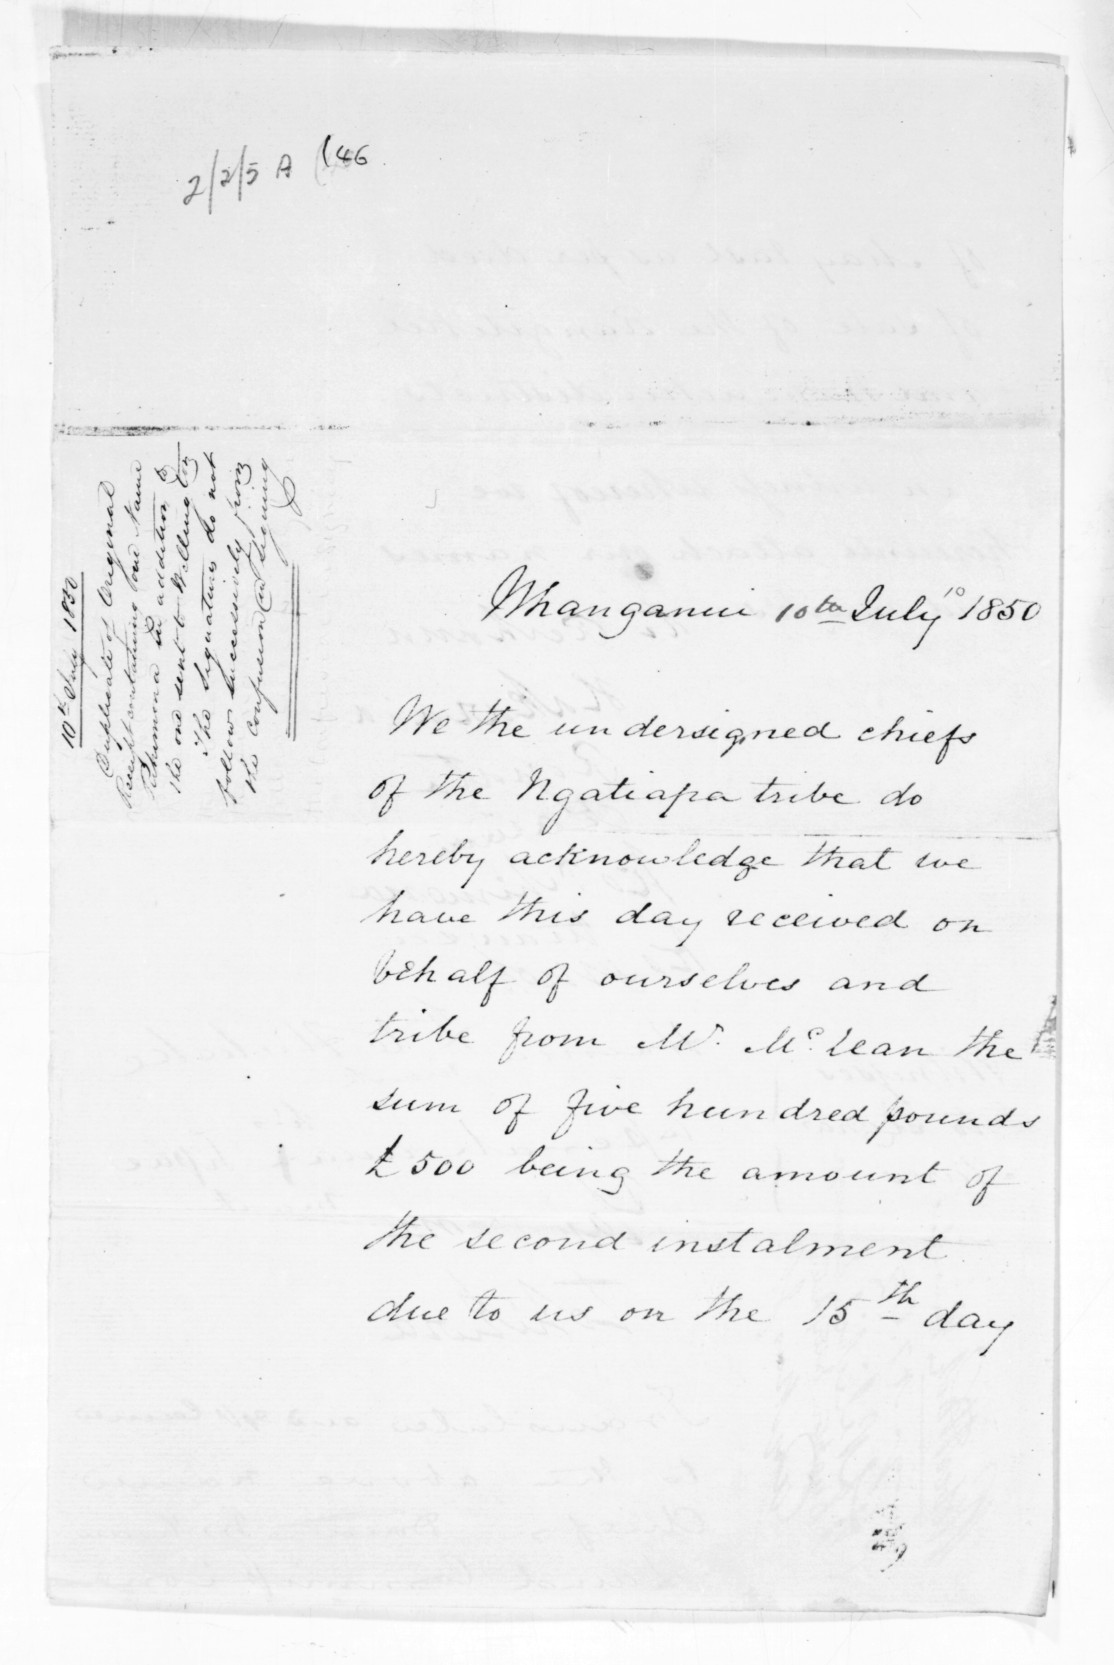 2/2/5 A (46
10th July 1850
Duplicate of Original
Receipt containing one Name
in addition to
the one sent to Wellington
The signatures do not
follow successively from
the confusion in signing
Whanganui 10th July 1850
We the undersigned chiefs
of the Ngatiapa tribe do
hereby acknowledge that we
have this day received on
behalf of ourselves and
tribe from Mr. McLean the
sum of five hundred pounds
£500 being the amount of
the second instalment
due to us on the 15th day